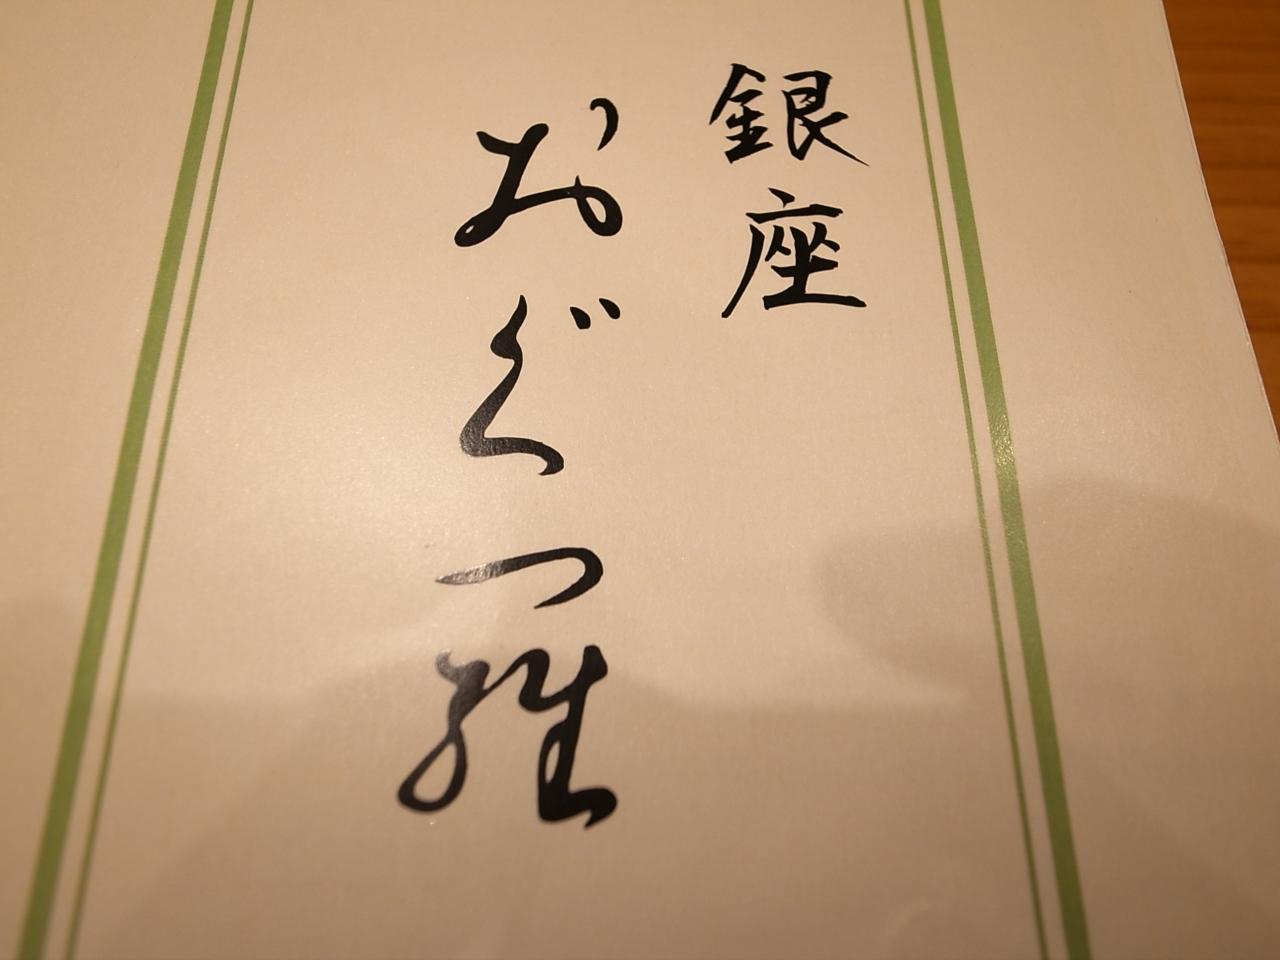 銀座
おぐ羅